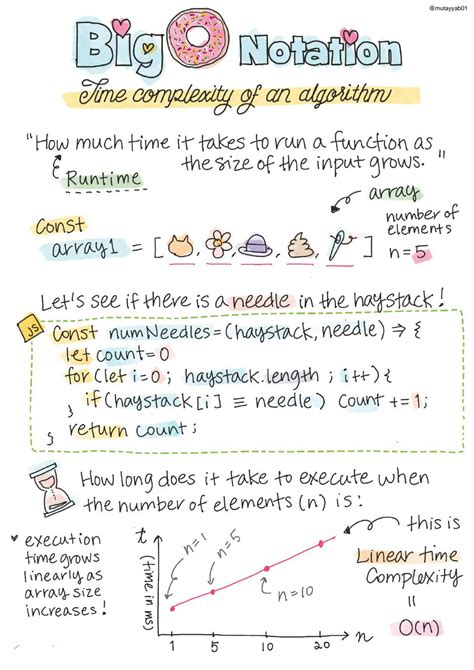 @mutayyab01
Big O Notation
Time complexity of an algorithm
"How much time it takes to run a function as
the size of the input grows."
Runtime
array
number of
elements
n=5
Const
array1 = [ , , , , ]
Let's see if there is a needle in the haystack!
JS
Const numNeedles = (haystack, needle) => {
let count=0
for (let i=0 ; haystack.length ; i++) {
if (haystack [i] ≡ needle) Count += 1;
}
return count ;
}
How long does it take to execute when
the number of elements (n) is:
execution
time grows
linearly as
array size
increases!
t
(time in ms)
n=1
n=5
n=10
1 5 10 20 n
this is
Linear time
Complexity
=
O(n)